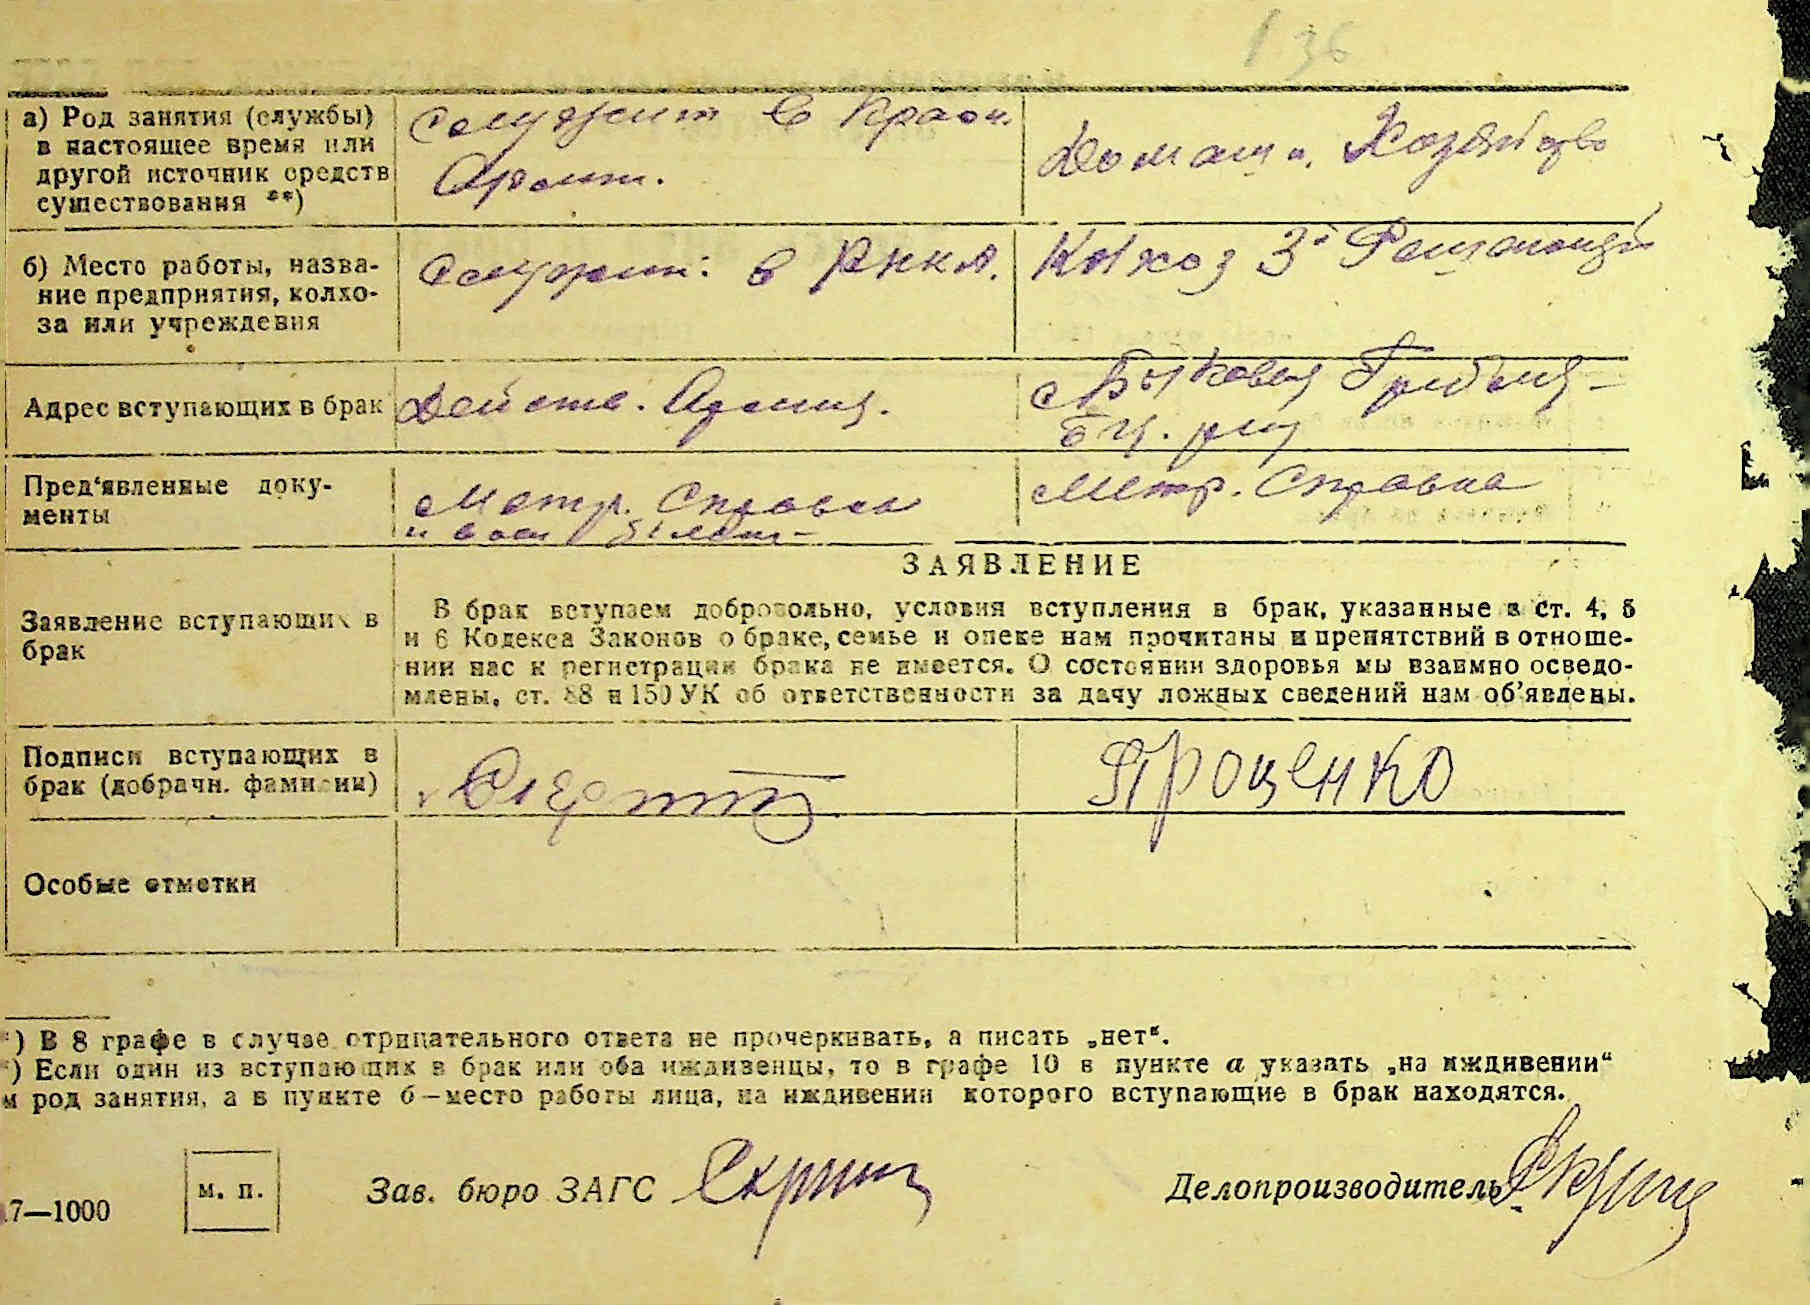 136
а) Род занятия (службы) в настоящее время или другой источник средств существования **)
Служит в Красн. Армии.
Домашн. Хозяйство
б) Место работы, название предприятия, колхоза или учреждения
Служит: в РККА.
К-хоз 3й
Адрес вступающих в брак
Действ. Армия.
с Быковая
р-н
Пред'явленные документы
Метр. Справка
и воен билет
Метр. Справка
ЗАЯВЛЕНИЕ
Заявление вступающих в брак
В брак вступаем добровольно, условия вступления в брак, указанные в ст. 4, 5
и 6 Кодекса Законов о браке, семье и опеке нам прочитаны и препятствий в отноше-
нии нас к регистрации брака не имеется. О состоянии здоровья мы взаимно осведо-
млены, ст. 88 и 150 УК об ответственности за дачу ложных сведений нам об'явлены.
Подписи вступающих в брак (добрачн. фамилии)
Проценко
Особые отметки
*) В 8 графе в случае отрицательного ответа не прочеркивать, а писать „нет".
*) Если один из вступающих в брак или оба иждивенцы, то в графе 10 в пункте а указать „на иждивении"
и род занятия, а в пункте б—место работы лица, на иждивении которого вступающие в брак находятся.
м. п.
Зав. бюро ЗАГС
Делопроизводитель
17—1000